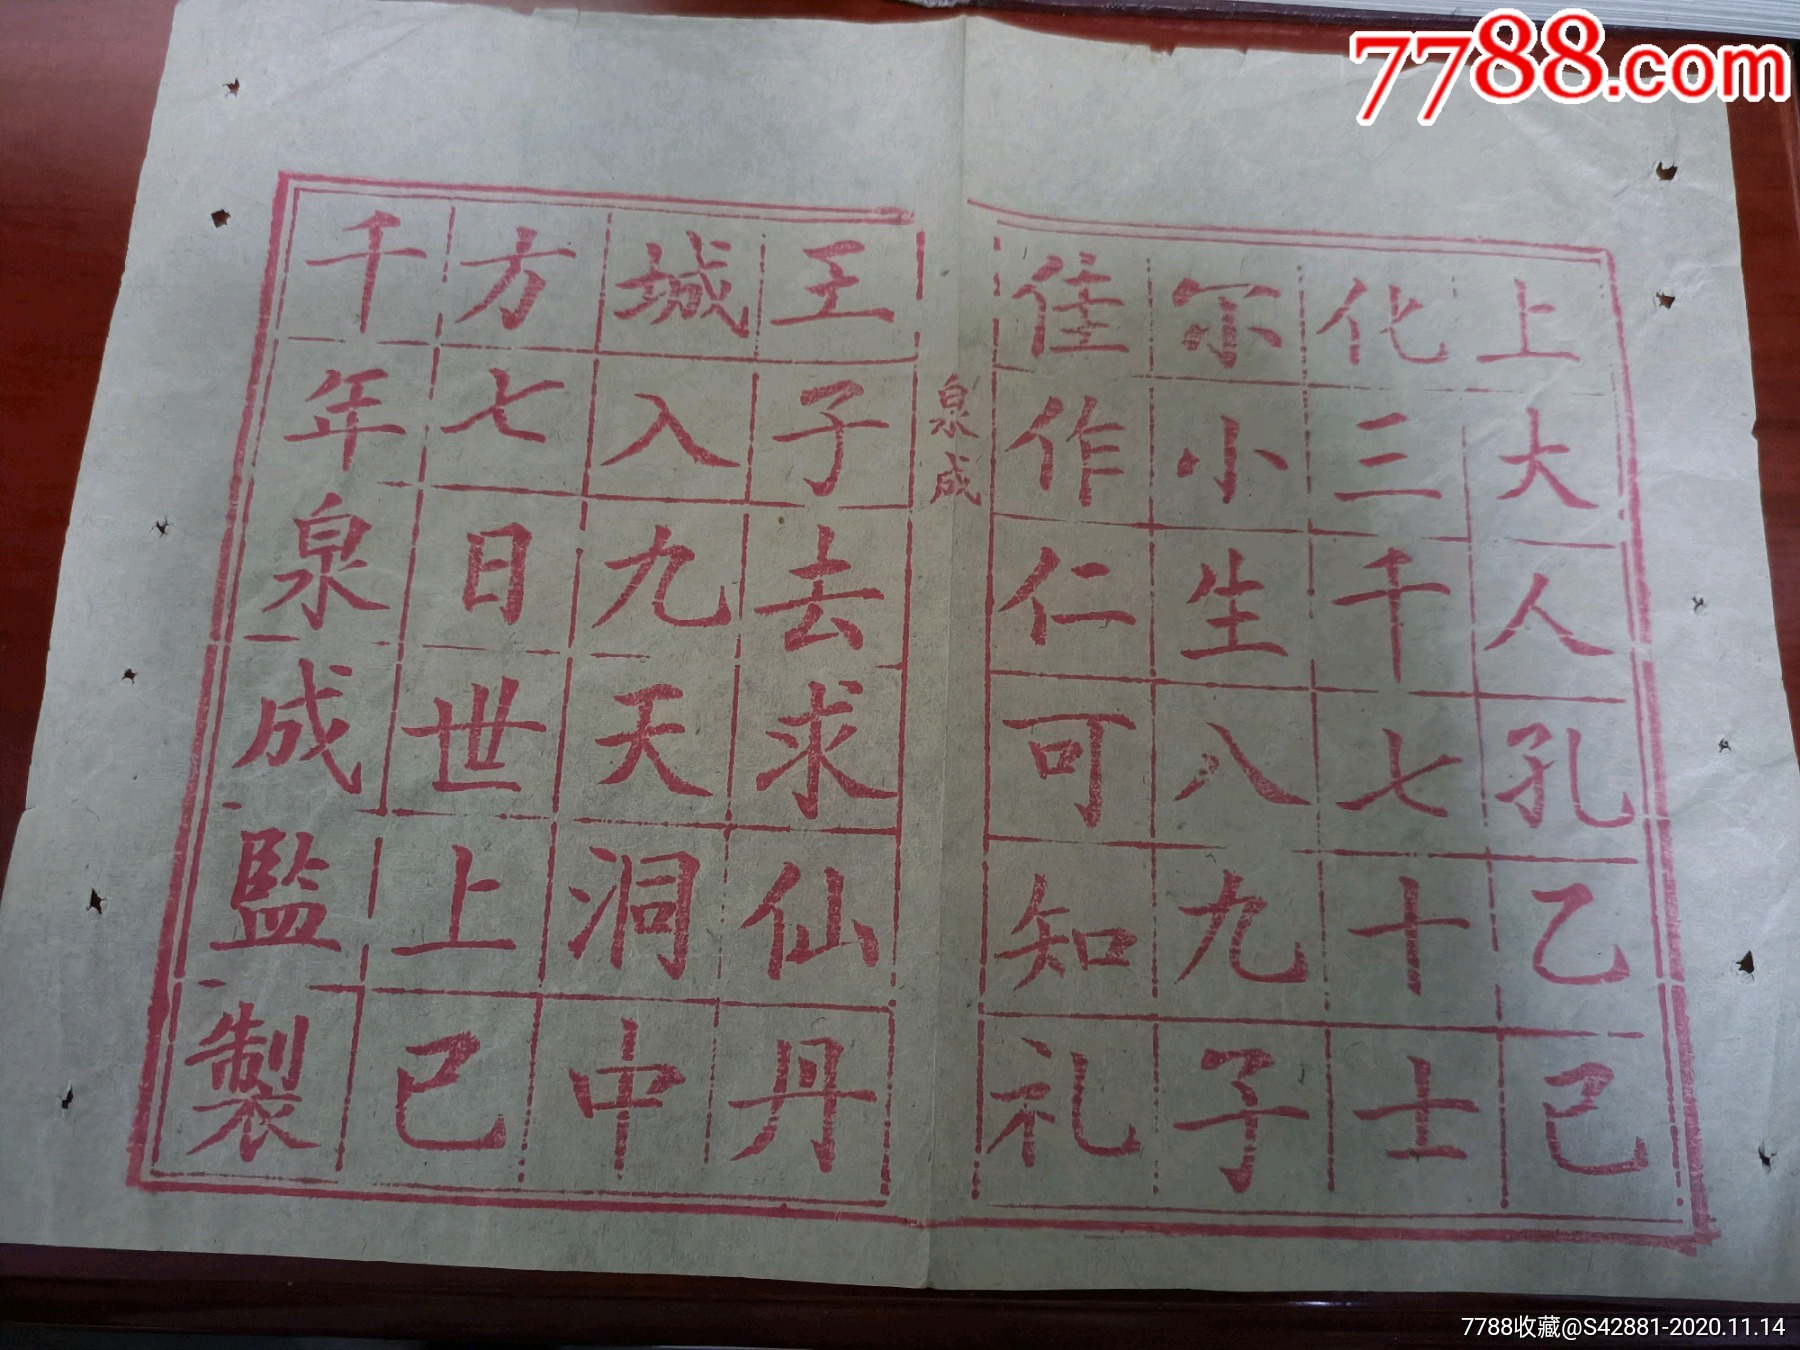 7788.com
上大人孔乙己
化三千七十士
尔小生八九子
佳作仁可知礼
泉成
王子去求仙丹
城入九天洞中
方七日世上己
千年泉成監製
7788收藏@S42881-2020.11.14